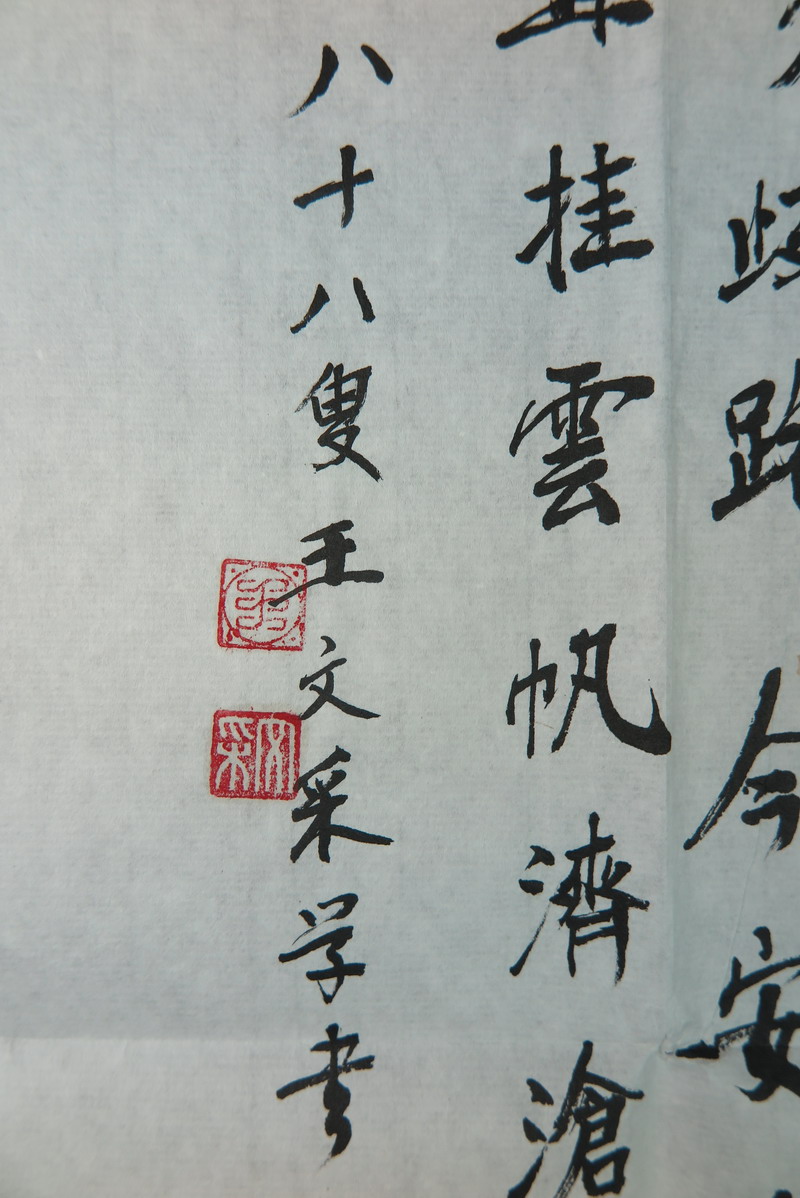 歧路今安
挂雲帆濟滄
八十八叟王文采学书
文采